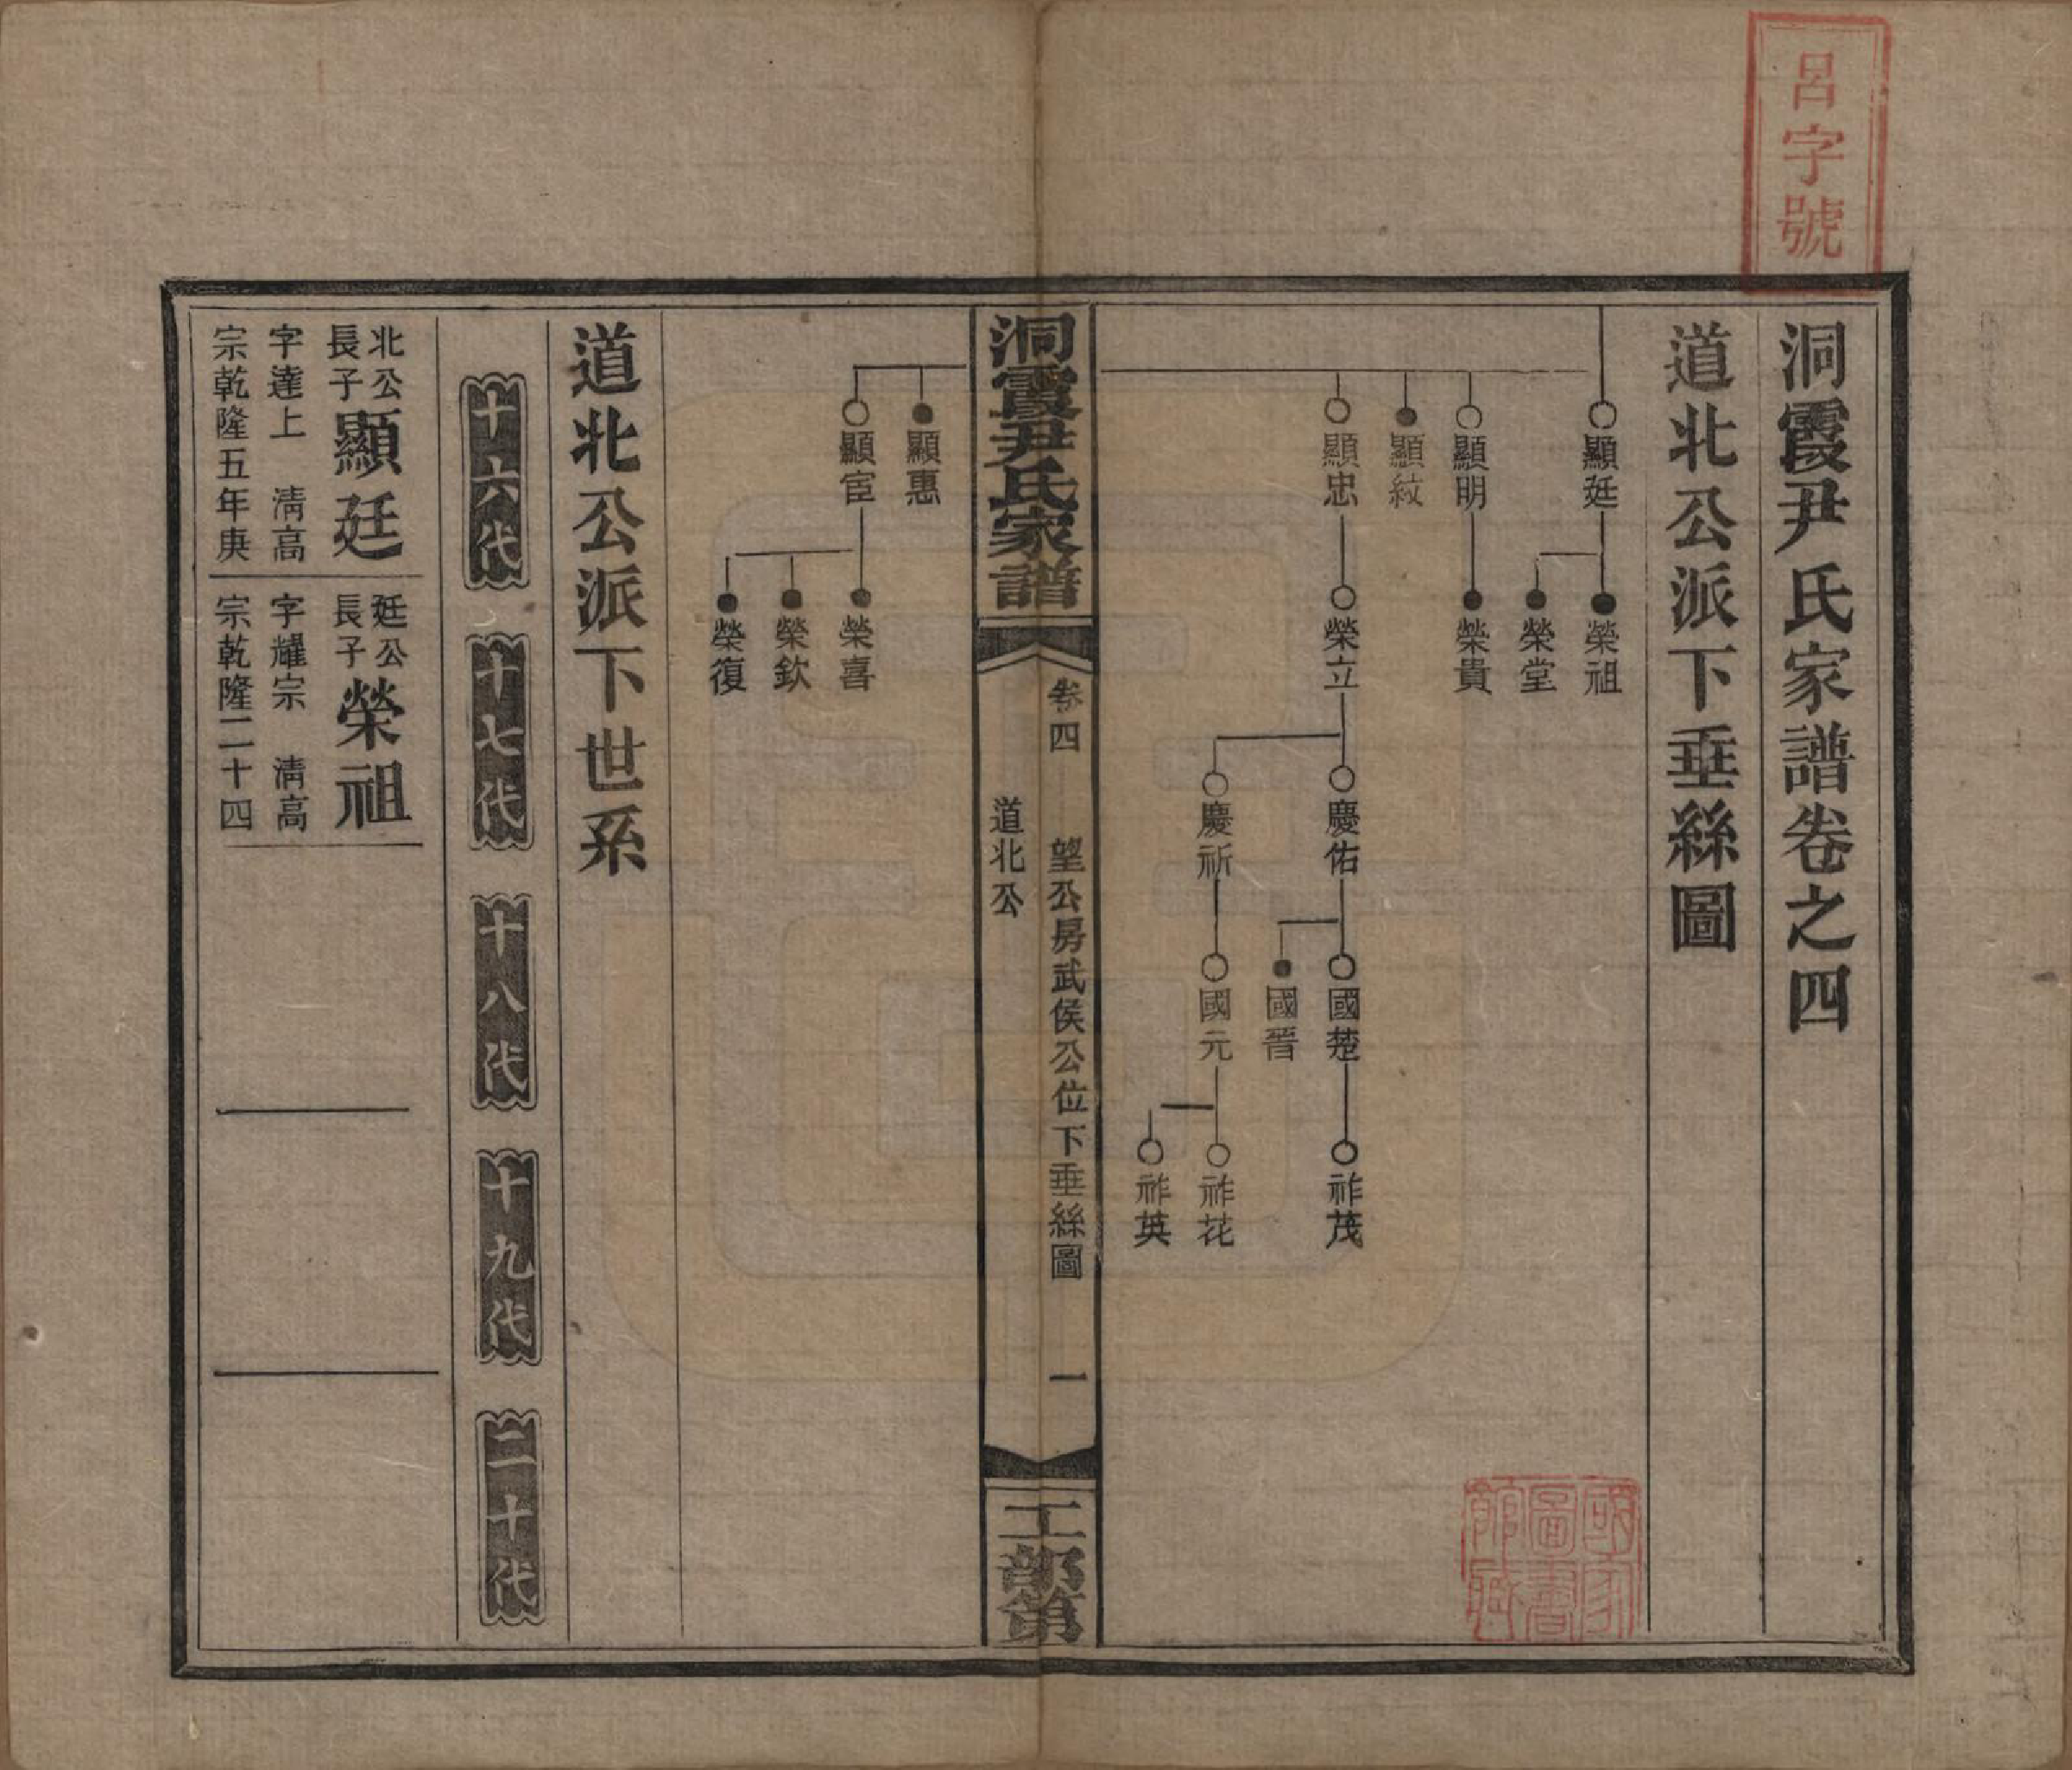 呂字號
洞霞尹氏家譜卷之四
道北公派下垂絲圖
顯廷
榮祖
榮堂
顯明
榮貴
顯紋
顯忠
榮立
慶佑
國楚
祚茂
國晉
慶祈
國元
祚花
祚英
國家圖書館藏
洞霞尹氏家譜
卷四
望公房武侯公位下垂絲圖
一
道北公
工部第
顯惠
顯宦
榮喜
榮欽
榮復
道北公派下世系
十六代
十七代
十八代
十九代
二十代
北公
長子
顯廷
字達上 清高
宗乾隆五年庚
廷公
長子
榮祖
字耀宗 清高
宗乾隆二十四